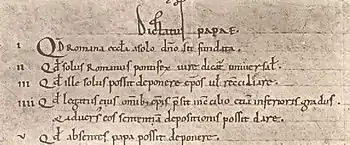 Dictatus papae.
I Qđ Romana eccla a solo dño sit fundata.
II Qđ solus Romanus pontifex iure dicat universał.
III Qđ ille solus possit deponere epos uł reciliare.
IIII Qđ legatus eius omib; epis p̄sit in cilio etiā inferioris gradus.
& adversus eos sententiā depositionis possit dare.
V Qđ absentes papa possit deponere.